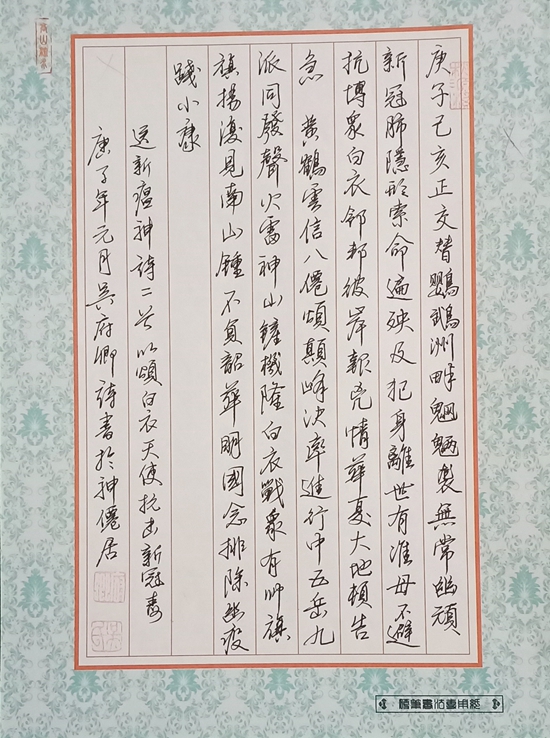 庚子己亥正交替鸚鵡洲畔魍魎製無常幽頑
新冠肺隱形索命遍殃及犯身離世有准毋不避
抗博眾白衣鄰邦彼岸報兇情華夏大地頓告
急 黃鶴雲信八僊頌顛峰決率進行中五岳九
派同發聲火雷神山鐘機隆白衣戰眾有帥旗
旗揚復見南山鍾不負韶華明國念排除幽疫
踐小康
送新瘟神詩二首以頌白衣天使抗击新冠毒
庚子年元月吳府卿詩書於神僊居